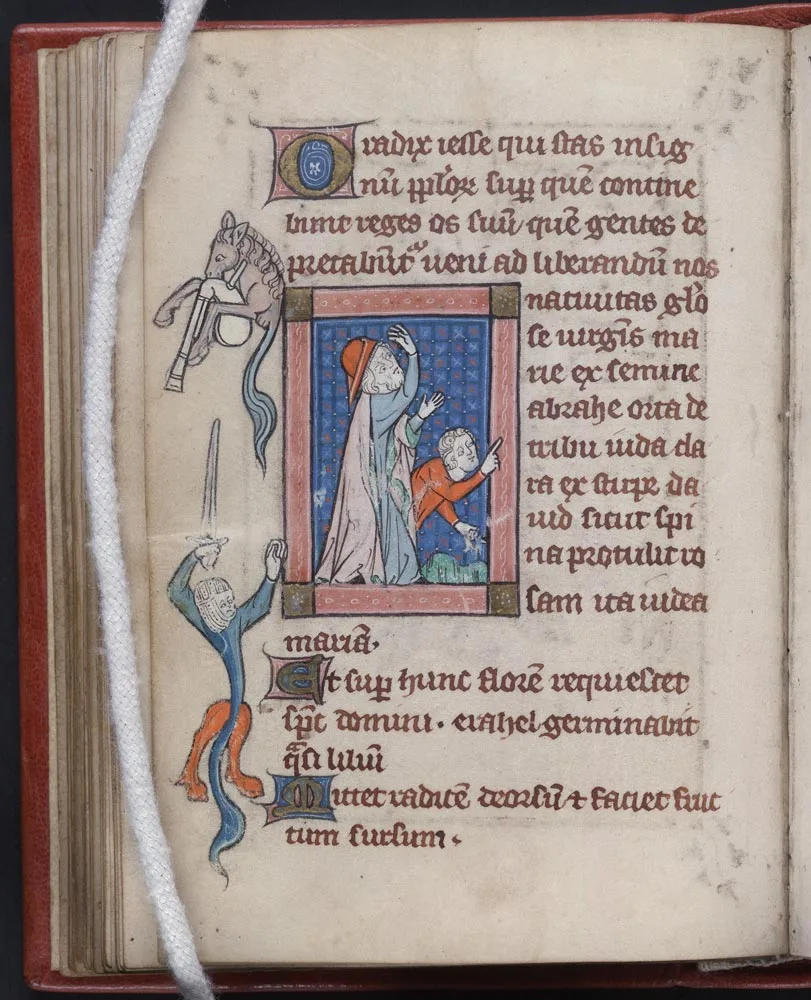 O radix iesse qui stas in sig
nū pplōꝝ sup quē contine
bunt reges os suū quē gentes de
precabūt᷑ ueni ad liberandū nos
natiuitas glō
se uirgīs ma
rie ex semine
abrahe orta de
tribu iuda cla
ra ex stirpe da
uid sicut spi
na protulit ro
sam ita iudea
mariā.
Et sup hunc florē requiescet
spc̄ domini. eꝛahel germinabit
q̄si liliū
Mittet radicē deorsū ⁊ faciet fruc
tum sursum.